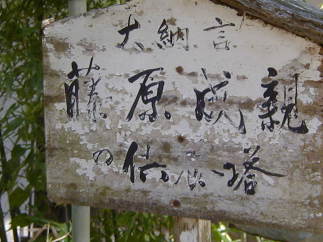 大納言
藤原成親
の供養塔